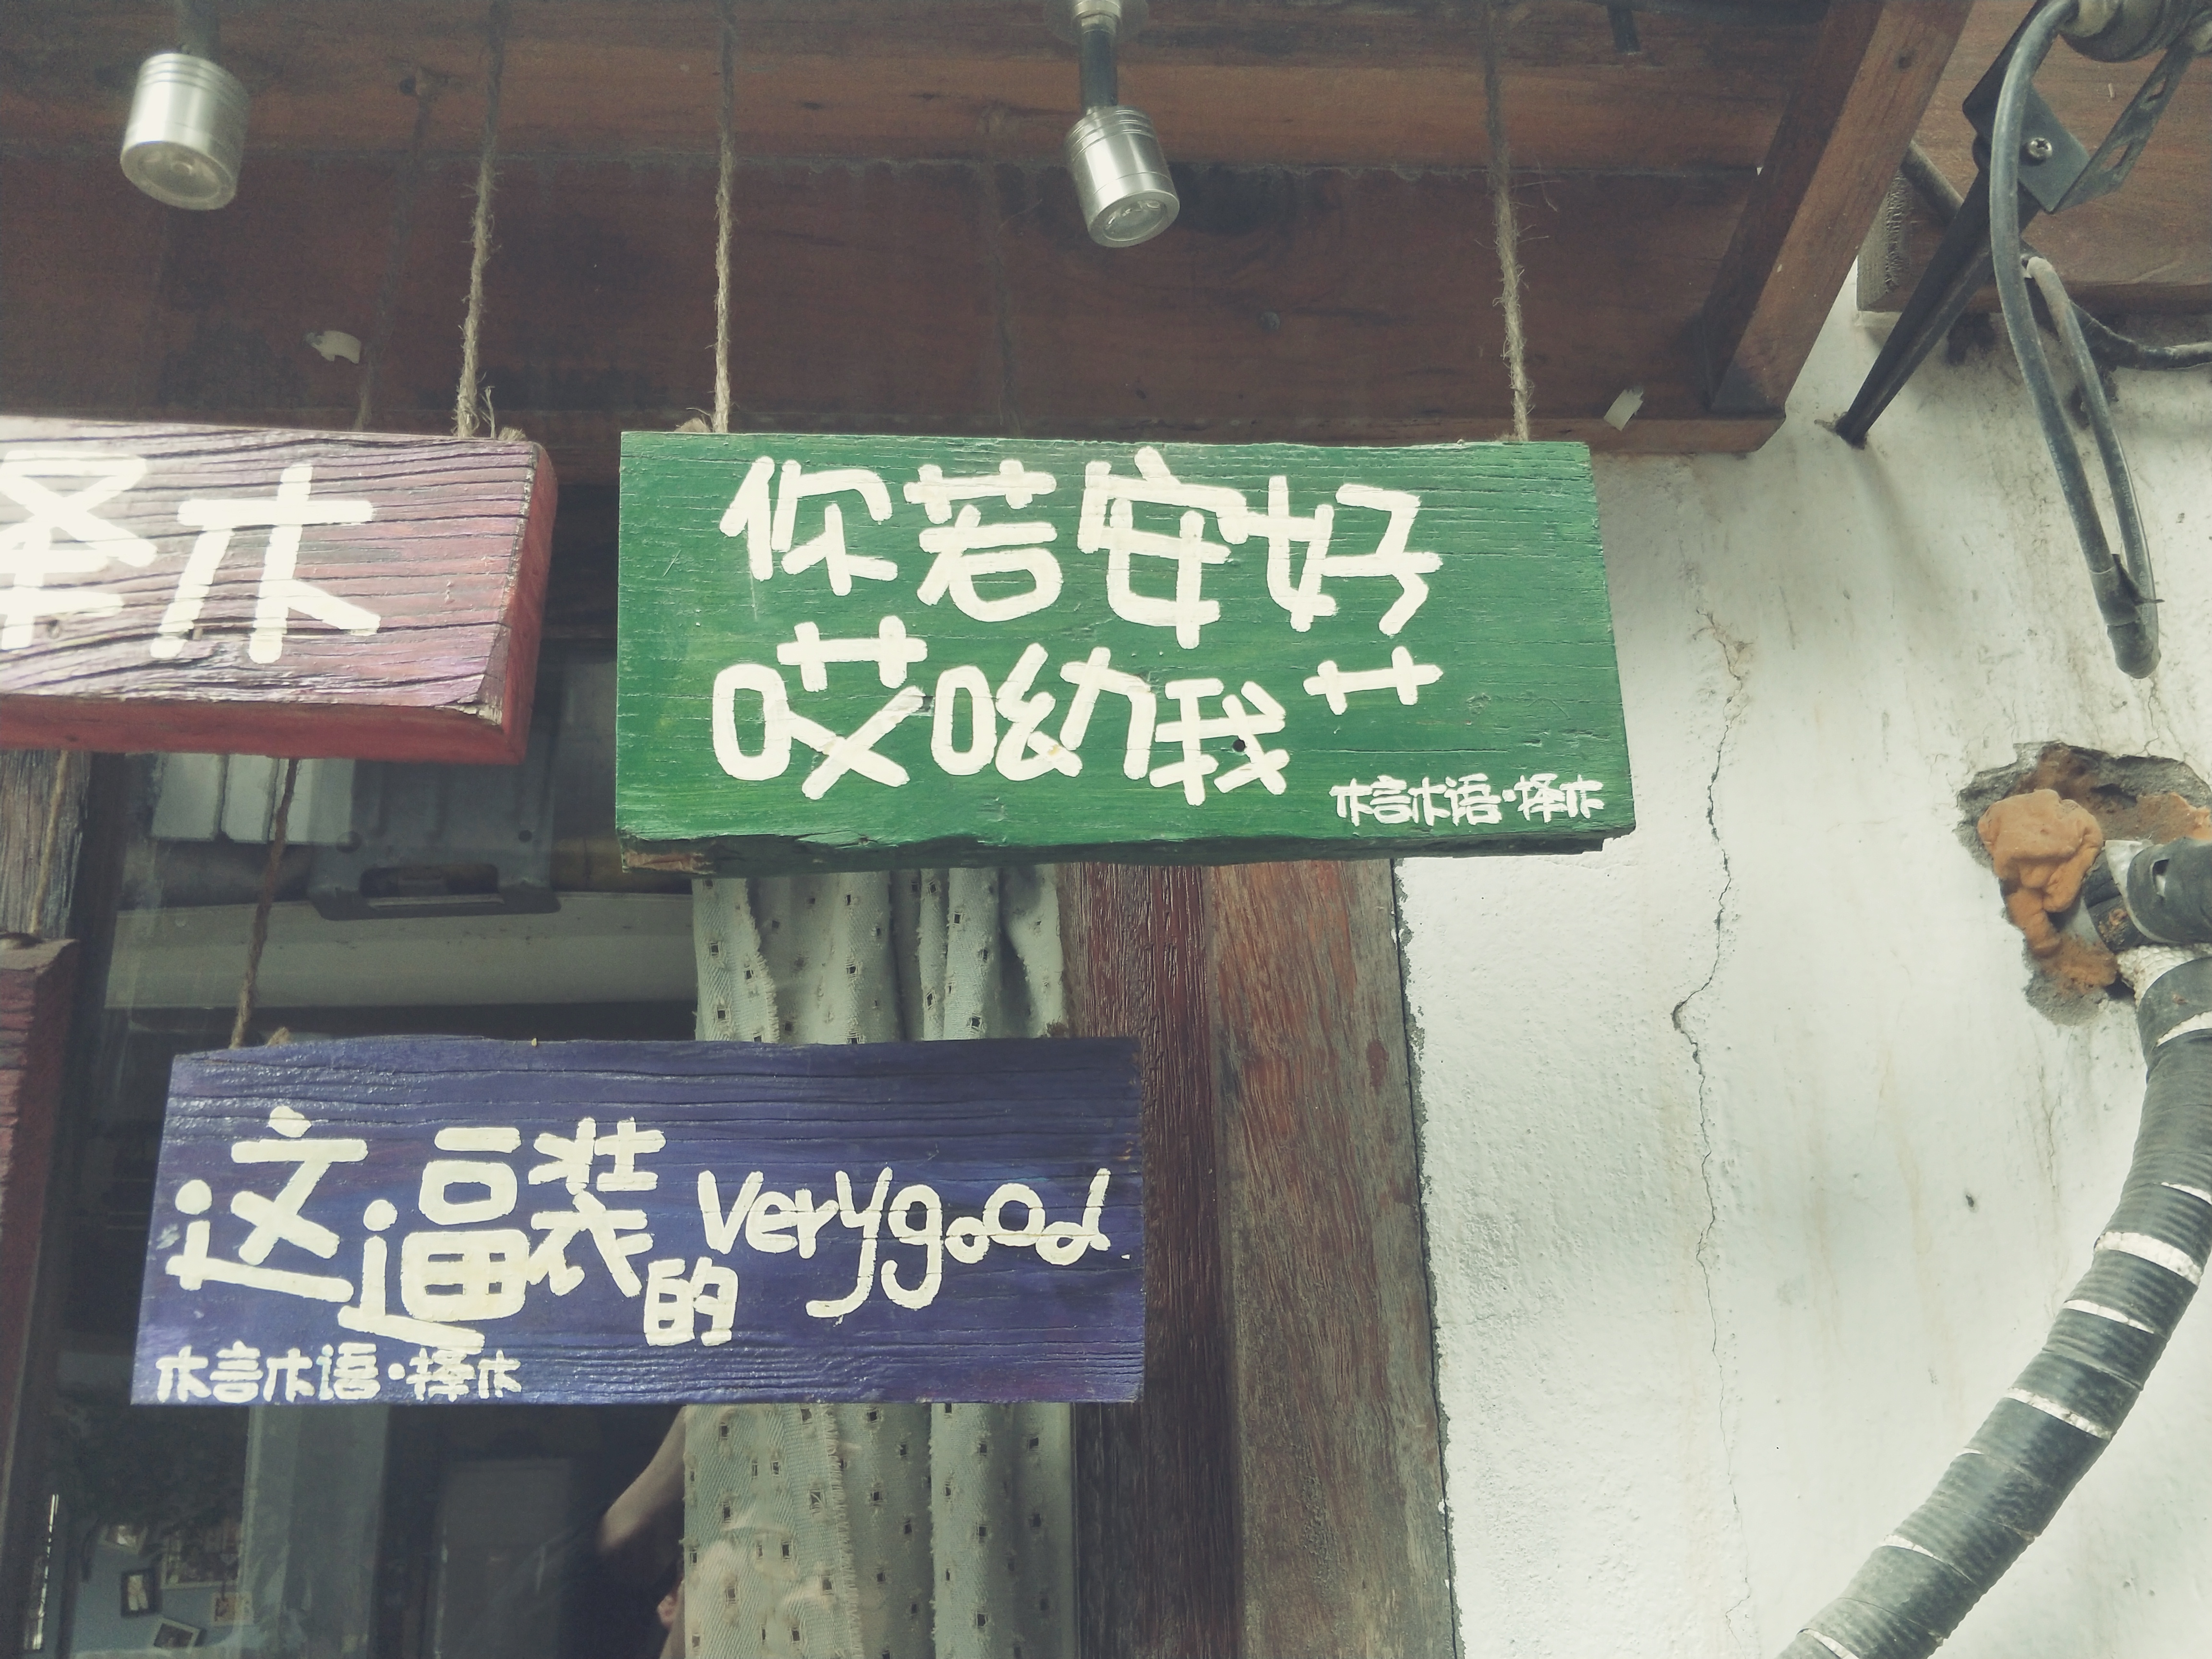 择木
你若安好
哎呦我艹
木言木语·择木
这逼装的verygood
木言木语·择木